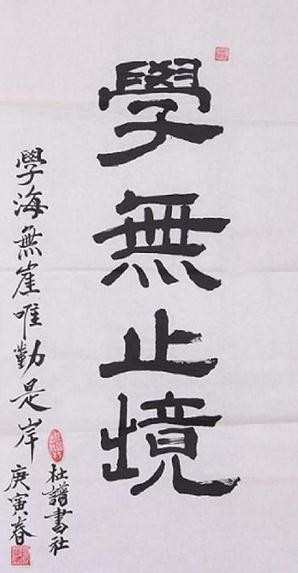 學無止境
學海無崖唯勤是岸
庚寅春
杜譜書社